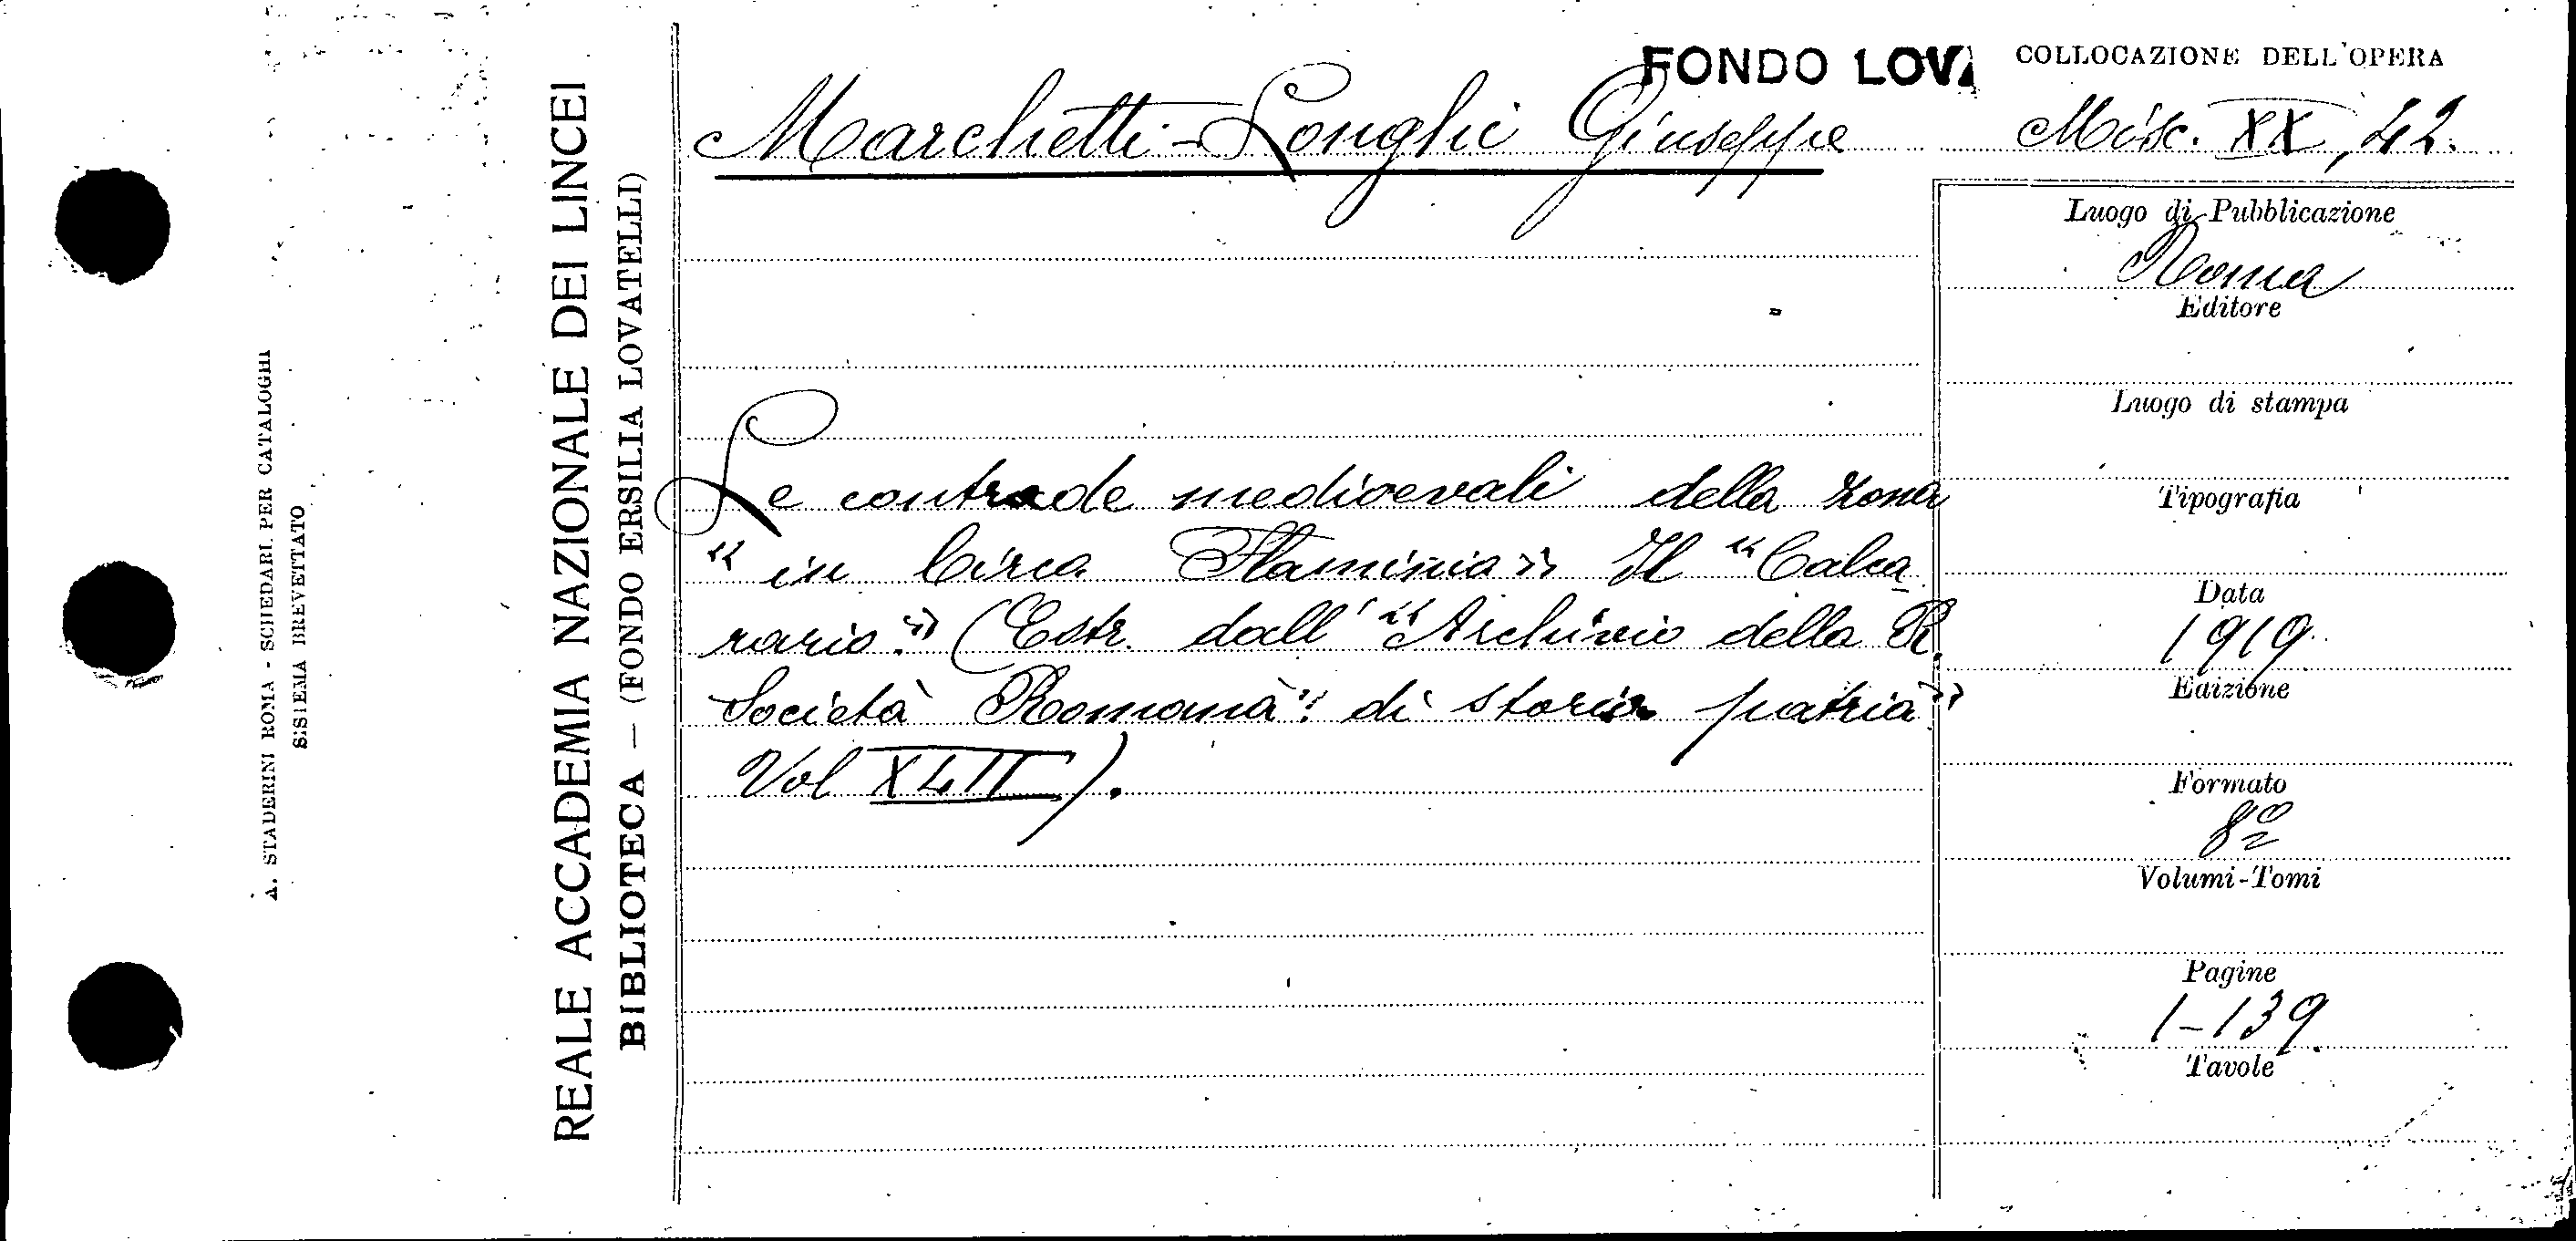 FONDO LOVA
COLLOCAZIONE DELL'OPERA
Marchetti-Longhi Giuseppe
Misc. XX, 42.
Le contrade medioevali della zona
“in Circo Flaminio” Il “Calca
rario” (Estr. dall' “Archivio della R.
Società Romana di storia patria”
Vol XLII).
Luogo di Pubblicazione
Roma
Editore
Luogo di stampa
Tipografia
Data
1919
Edizione
Formato
8º
Volumi-Tomi
Pagine
1-139
Tavole
REALE ACCADEMIA NAZIONALE DEI LINCEI
BIBLIOTECA — (FONDO ERSILIA LOVATELLI)
A. STADERINI ROMA - SCHEDARI PER CATALOGHI
SISTEMA BREVETTATO